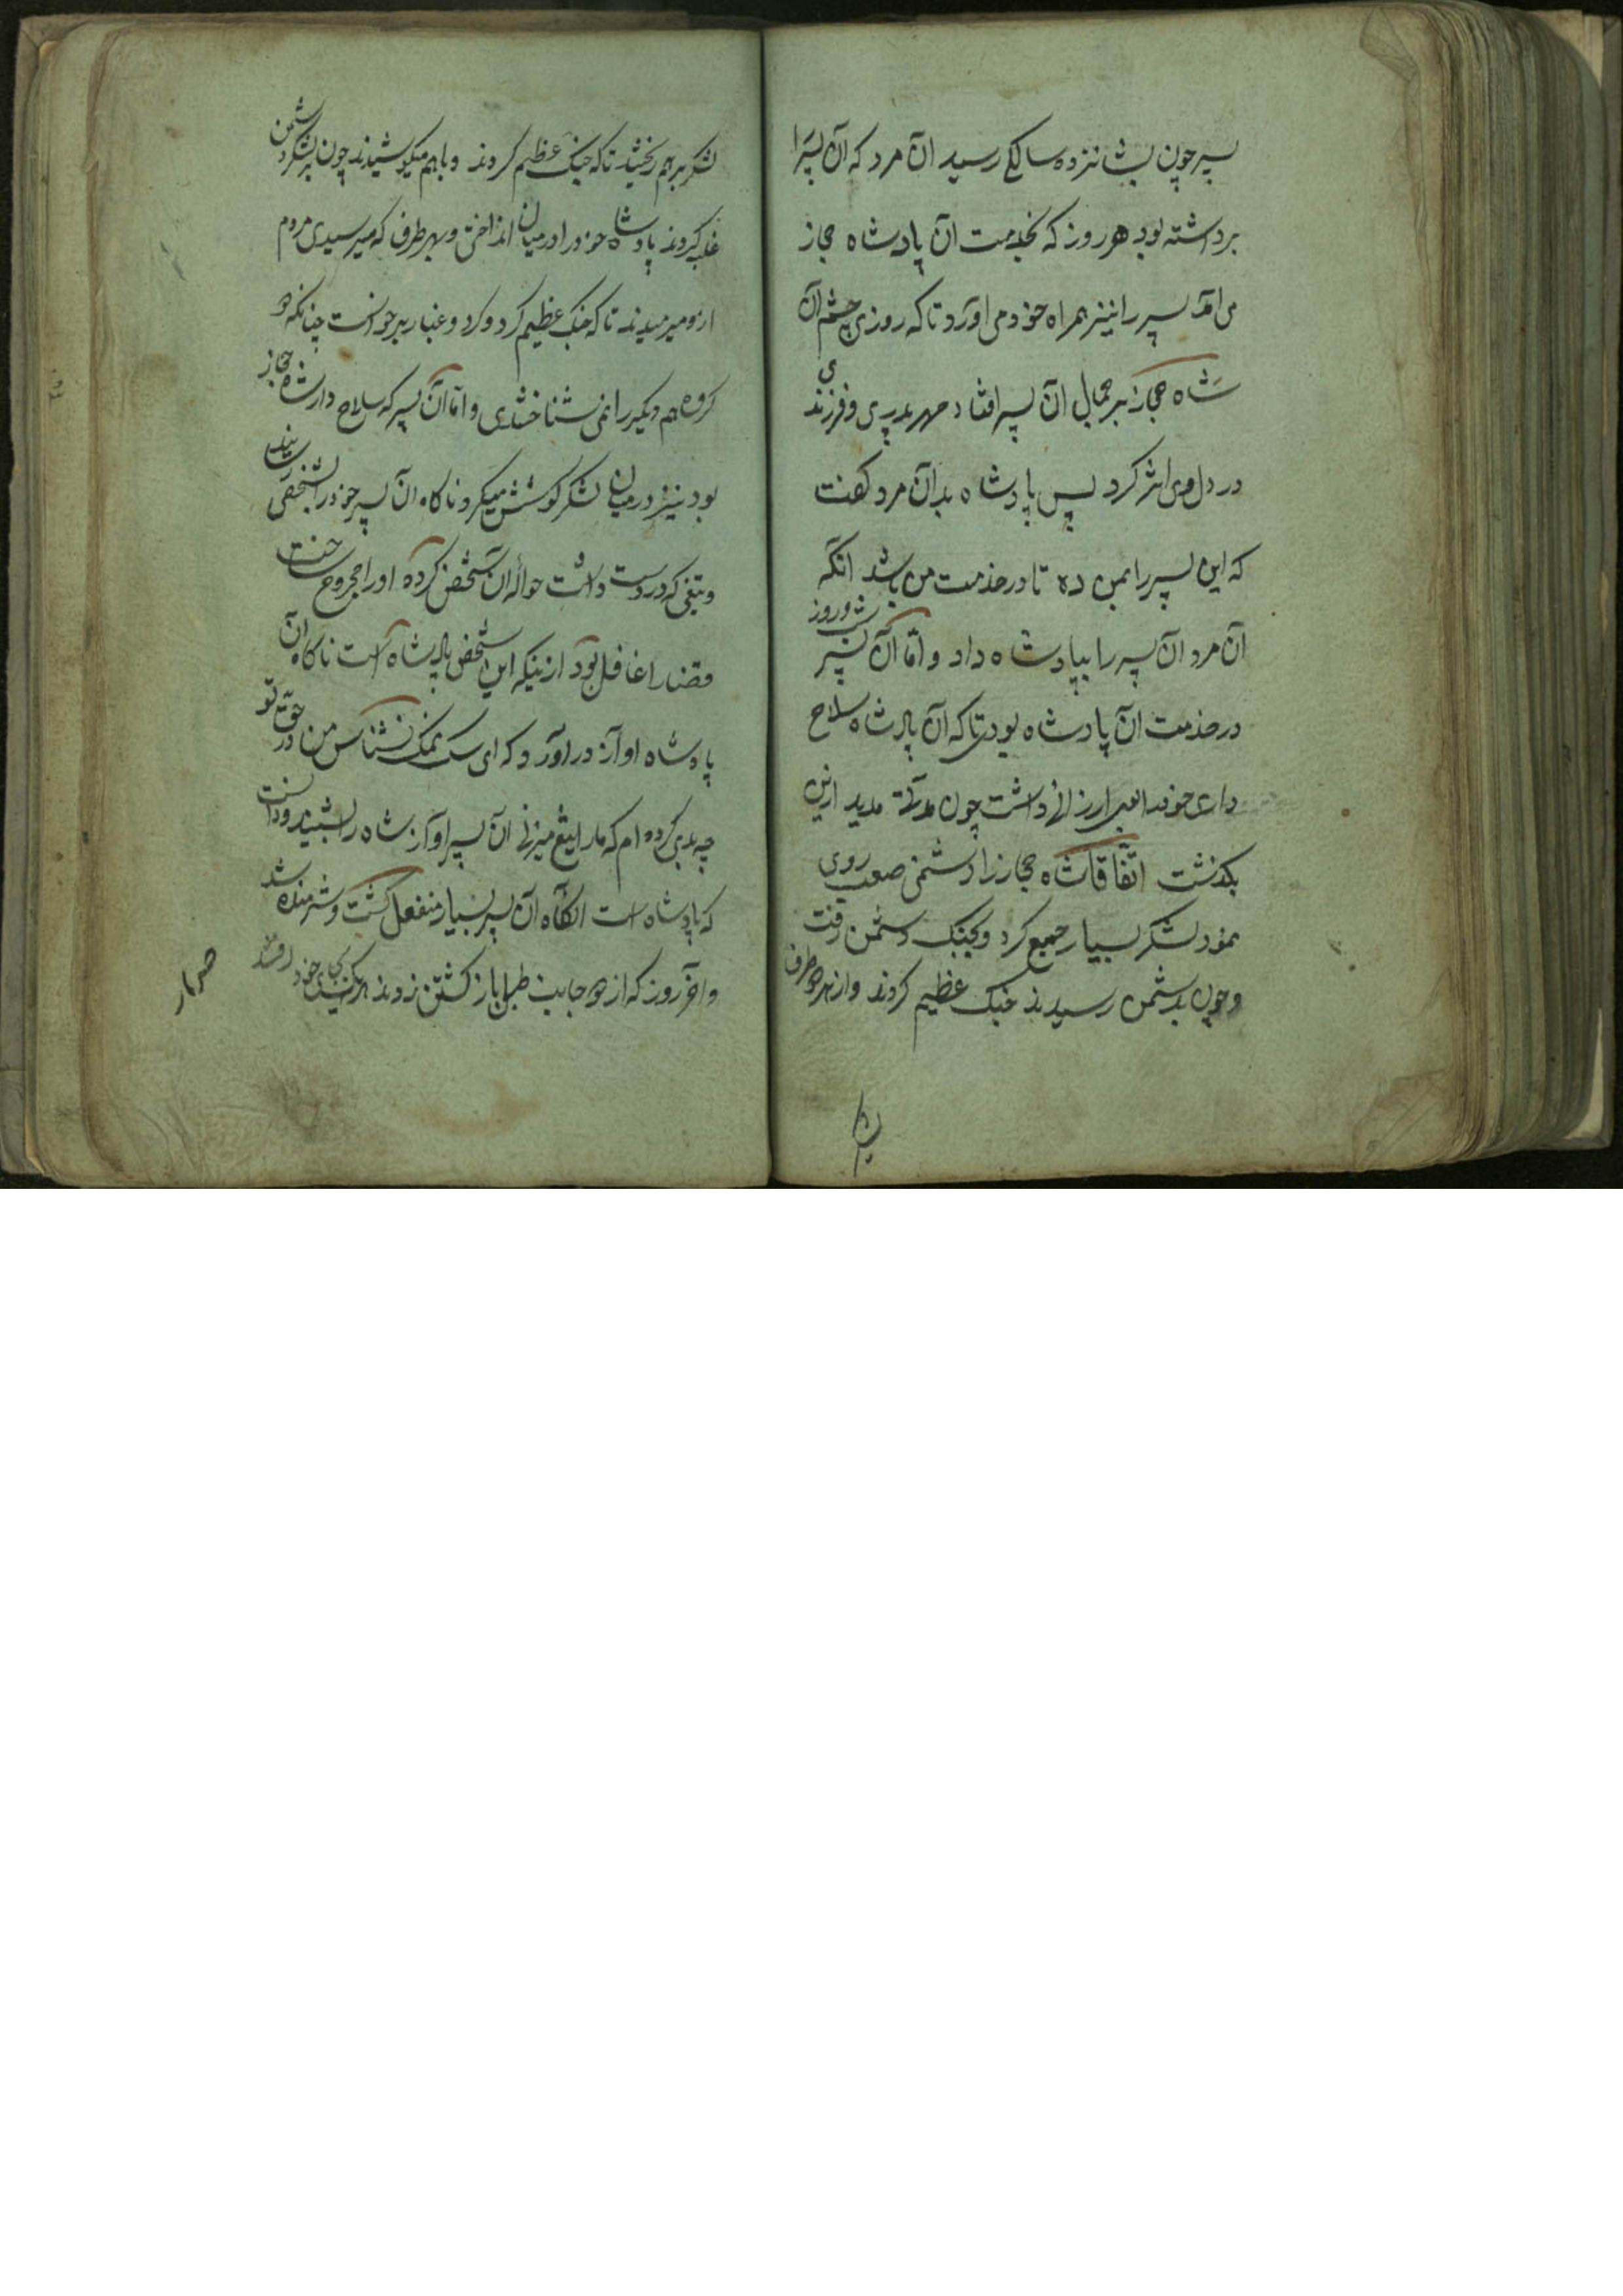 پسر چون بشانزده سالکی رسید ان مرد که آن پسررا
برداشته بود هر روز که بخدمت ان پادشاه حجاز
می آمد پسر را نیز همراه خود می آورد تا که روزی چشم آن
شاه حجاز بر جمال ان پسر افتاد مهر پدری و فرزندی
در دل وی اثر کرد پس پادشاه بدان مرد گفت
که این پسر را بمن ده تا در خدمت من باشد آنکه
آن مرد آن پسر را بپادشاه داد و اما آن پسر شب و روز
در خدمت ان پادشاه بودی تا که آن پادشاه سلاح
داری خود ارزانی داشت چون مدتی مدید ازین
بکذشت اتفاقا شاه حجاز را دشمنی صعب روی
نمود لشکر بسیار جمع کرد و بجنک دشمن رفت
و چون بدشمن رسیدند جنک عظیم کردند و از هر دو طرف
لشکر برهم ریختند تا که جنک عظیم کردند و باهم میکوشیدند چون لشکر دشمن
غلبه کردند پادشاه خود را در میان انداختی و بهر طرف که میرسیدی مردم
ازو میرمیدند تا که جنک عظیم کرد و کرد و غبار برخواست چنانکه دو
کروه هم دیکر را نمی شناختندی و اما آن پسر که سلاح دار شاه حجاز
بود نیز در میان لشکر کوشش میکرد ناکاه آن پسر خود را بشخصی رسانید
و تیغی که در دست داشت حوالهٔ آن شخص کرده او را مجروح ساخت
قضارا غافل بود ازینکه این شخص پادشاه است ناکاه آن
پادشاه اواز در آورد که ای سک نمک نشناس من در حق تو
چه بدی کرده ام که مارا تیغ میزنی ان پسر اواز شاه را شنید و دانست
که پادشاه است انکاه آن پسر بسیار منفعل کشت و شرمنده شد
و آخر روز که از هر دو جانب طبل باز کشتن زدند هر یکی خود